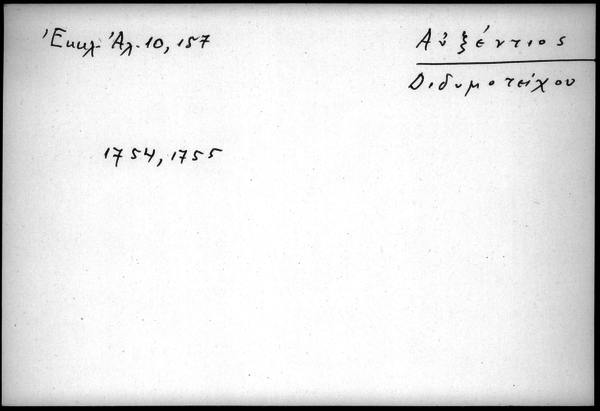 Ἐκκλ. Ἀλ. 10, 157
Αὐξέντιος
Διδυμοτείχου
1754, 1755